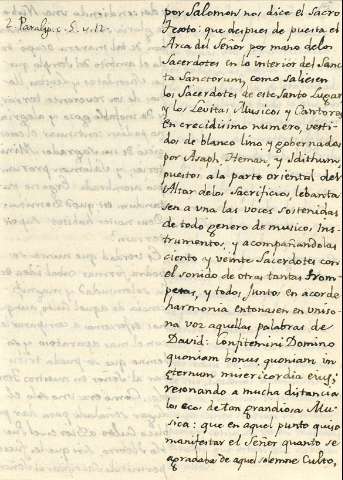 2. Paralyp. c. 5. v. 12.
por Salomon nos dice el Sacro
Texto: que despues de puesta el
Arca del Señor por mano de los
Sacerdotes en lo interior del Sanc
ta Sanctorum, como saliesen
los Sacerdotes de este Santo Lugar
y los Levitas Musicos, y Cantores
en crecidisimo numero, vesti-
dos de blanco lino, y gobernados
por Asaph, Heman, y Idithum,
puestos a la parte oriental del
Altar delos Sacrificios, lebanta
sen a vna las voces sostenidas
de todo genero de musicos Ins
trumentos, y acompañandolas
ciento y veinte Sacerdotes con
el sonido de otras tantas trom
petas, y todos juntos en acorde
harmonia entonasen en vniso-
na voz aquellas palabras de
David: Confitemini Domino
quoniam bonus, quoniam in
æternum misericordia eius;
resonando a mucha distancia
los ecos de tan grandiosa Mu-
sica: que en aquel punto quiso
manifestar el Señor quanto se
agradaba de aquel solemne Culto,